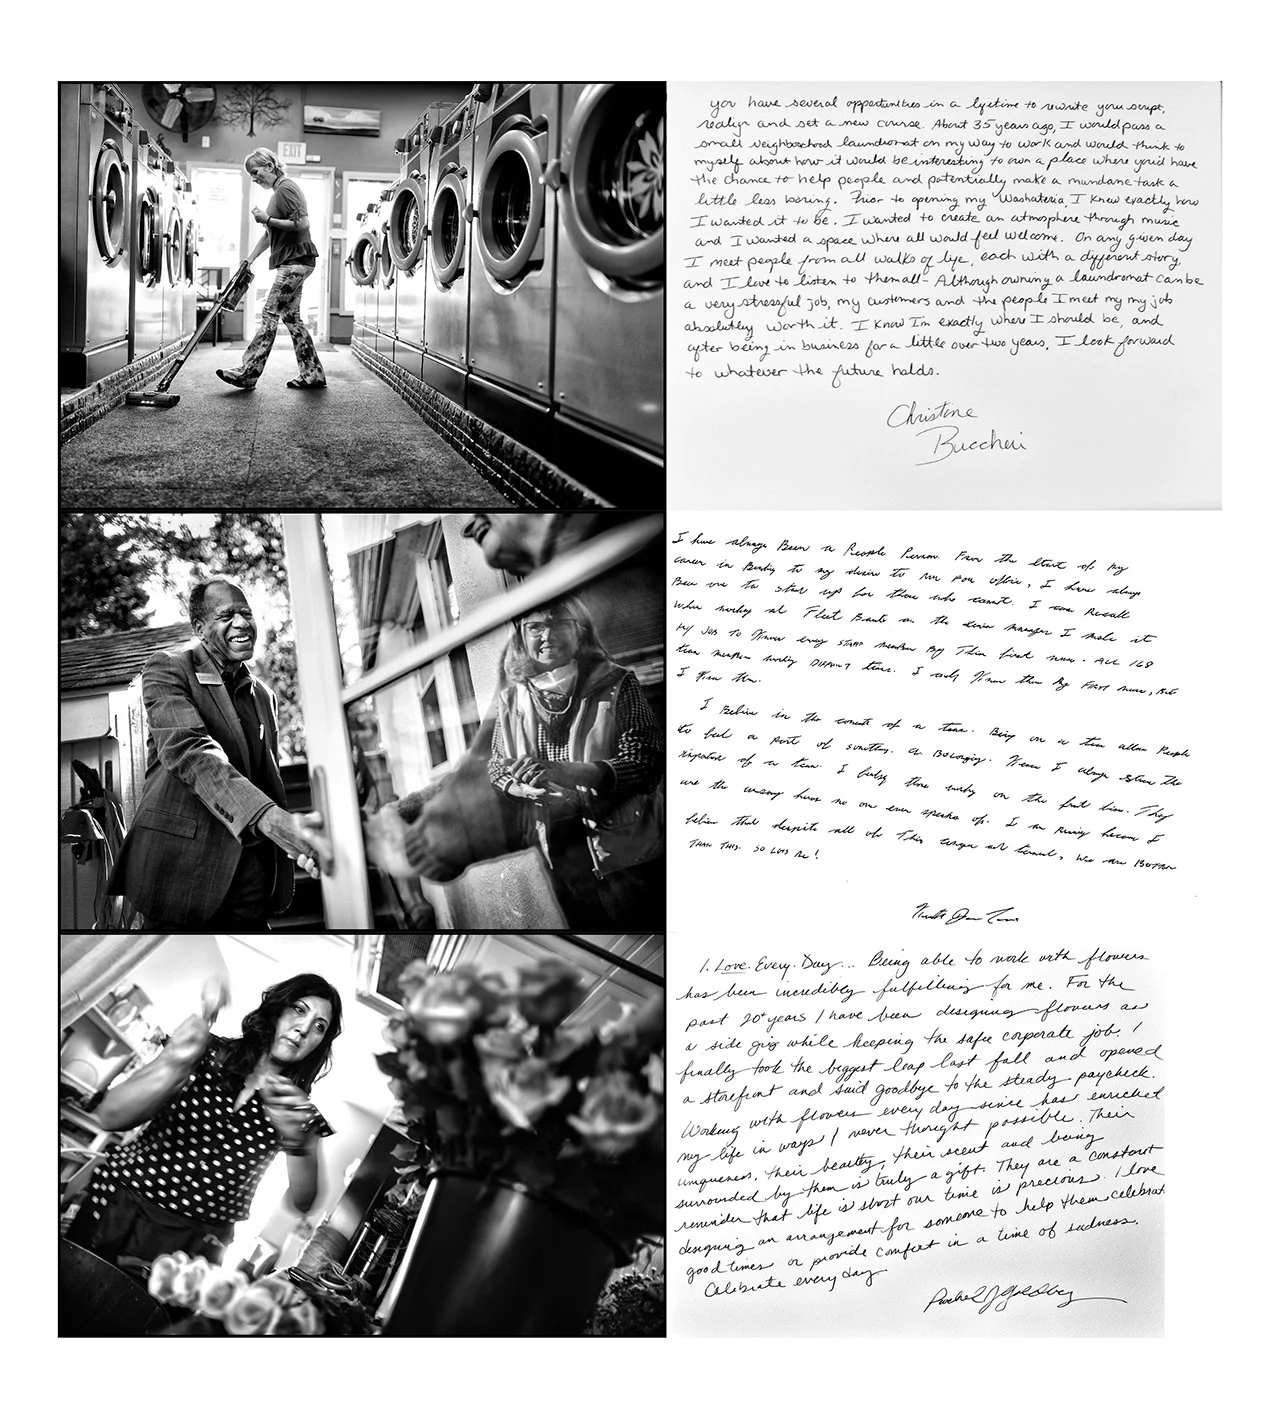 EXIT
you have several opportunities in a lifetime to rewrite your script,
realign and set a new course. About 35 years ago, I would pass a
small neighborhood laundromat on my way to work and would think to
myself about how it would be interesting to own a place where you'd have
the chance to help people and potentially make a mundane task a
little less boring. Prior to opening my Washateria, I knew exactly how
I wanted it to be. I wanted to create an atmosphere through music
and I wanted a space where all would feel welcome. On any given day
I meet people from all walks of life, each with a different story,
and I love to listen to them all. Although owning a laundromat can be
a very stressful job, my customers and the people I meet my my job
absolutley worth it. I know I'm exactly where I should be, and
after being in business for a little over two years, I look forward
to whatever the future holds.
Christine
Buccheri
I have always Been a People Person. From the start of my
career in Banking to my desire to run for office, I have always
Been one to stand up for those who cannot. I can Recall
when working at Fleet Bank as the senior manager I made it
my JOB TO Know every STAFF member By Their first name. ALL 168
team members working DIFFERENT times. I only Knew them By FIRST name, But
I Knew them.
I Believe in the concept of a team. Being on a team allows People
to feel a Part of something. A Belonging. I always the
importance of a team. I those working on the front line. They
are the unsung heros no one ever speaks of. I am Running because I
believe that despite all of This anger and turmoil, we are BETTER
THAN THIS. SO LETS Be!
1. Love. Every. Day... Being able to work with flowers
has been incredibly fulfilling for me. For the
past 20+ years I have been designing flowers as
a side gig while keeping the safe corporate job. I
finally took the biggest leap last fall and opened
a storefront and said goodbye to the steady paycheck.
Working with flowers every day since has enriched
my life in ways I never thought possible. Their
uniqueness, their beauty, their scent and being
surrounded by them is truly a gift. They are a constant
reminder that life is short our time is precious. I love
designing an arrangement for someone to help them celebrate
good times or provide comfort in a time of sadness.
Celebrate every day
Rachel J Goldberg